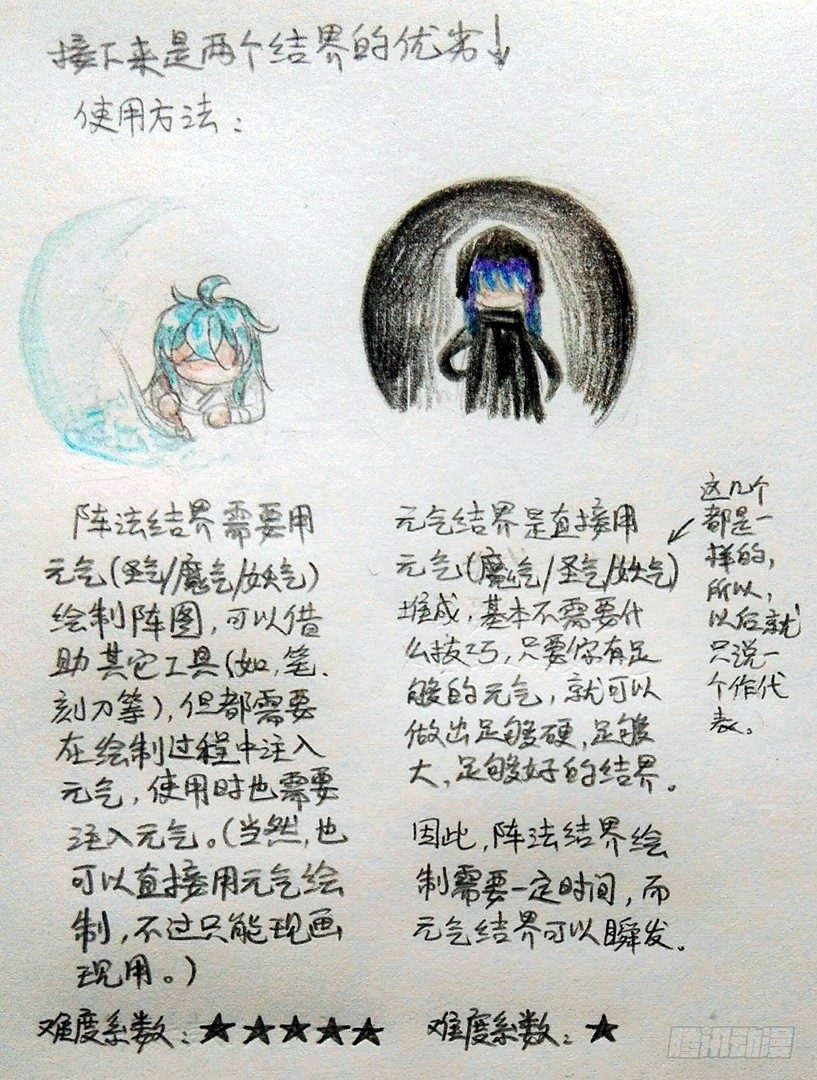 接下来是两个结界的优劣↓
使用方法：
阵法结界需要用
元气(圣气/魔气/妖气)
绘制阵图，可以借
助其它工具(如，笔、
刻刀等)，但都需要
在绘制过程中注入
元气，使用时也需要
注入元气。(当然，也
可以直接用元气绘
制，不过只能现画
现用。)
难度系数：★★★★★
元气结界是直接用
元气(魔气/圣气/妖气)
堆成，基本不需要什
么技巧，只要你有足
够的元气，就可以
做出足够硬，足够
大，足够好的结界。
因此，阵法结界绘
制需要一定时间，而
元气结界可以瞬发。
难度系数：★
这几个
都是一
样的，
所以，
以后就
只说一
个作代
表。
腾讯动漫